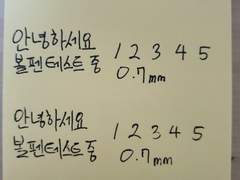 안녕하세요
볼펜테스트 중
1 2 3 4 5
0.7mm
안녕하세요
볼펜테스트 중
1 2 3 4 5
0.7mm